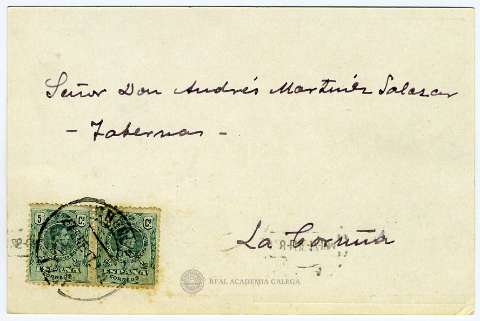 Señor Don Andrés Martínez Salazar
- Tabernas -
La Coruña
5 Cs 5 Cs
ESPAÑA ESPAÑA
CORREOS CORREOS
REAL ACADEMIA GALEGA